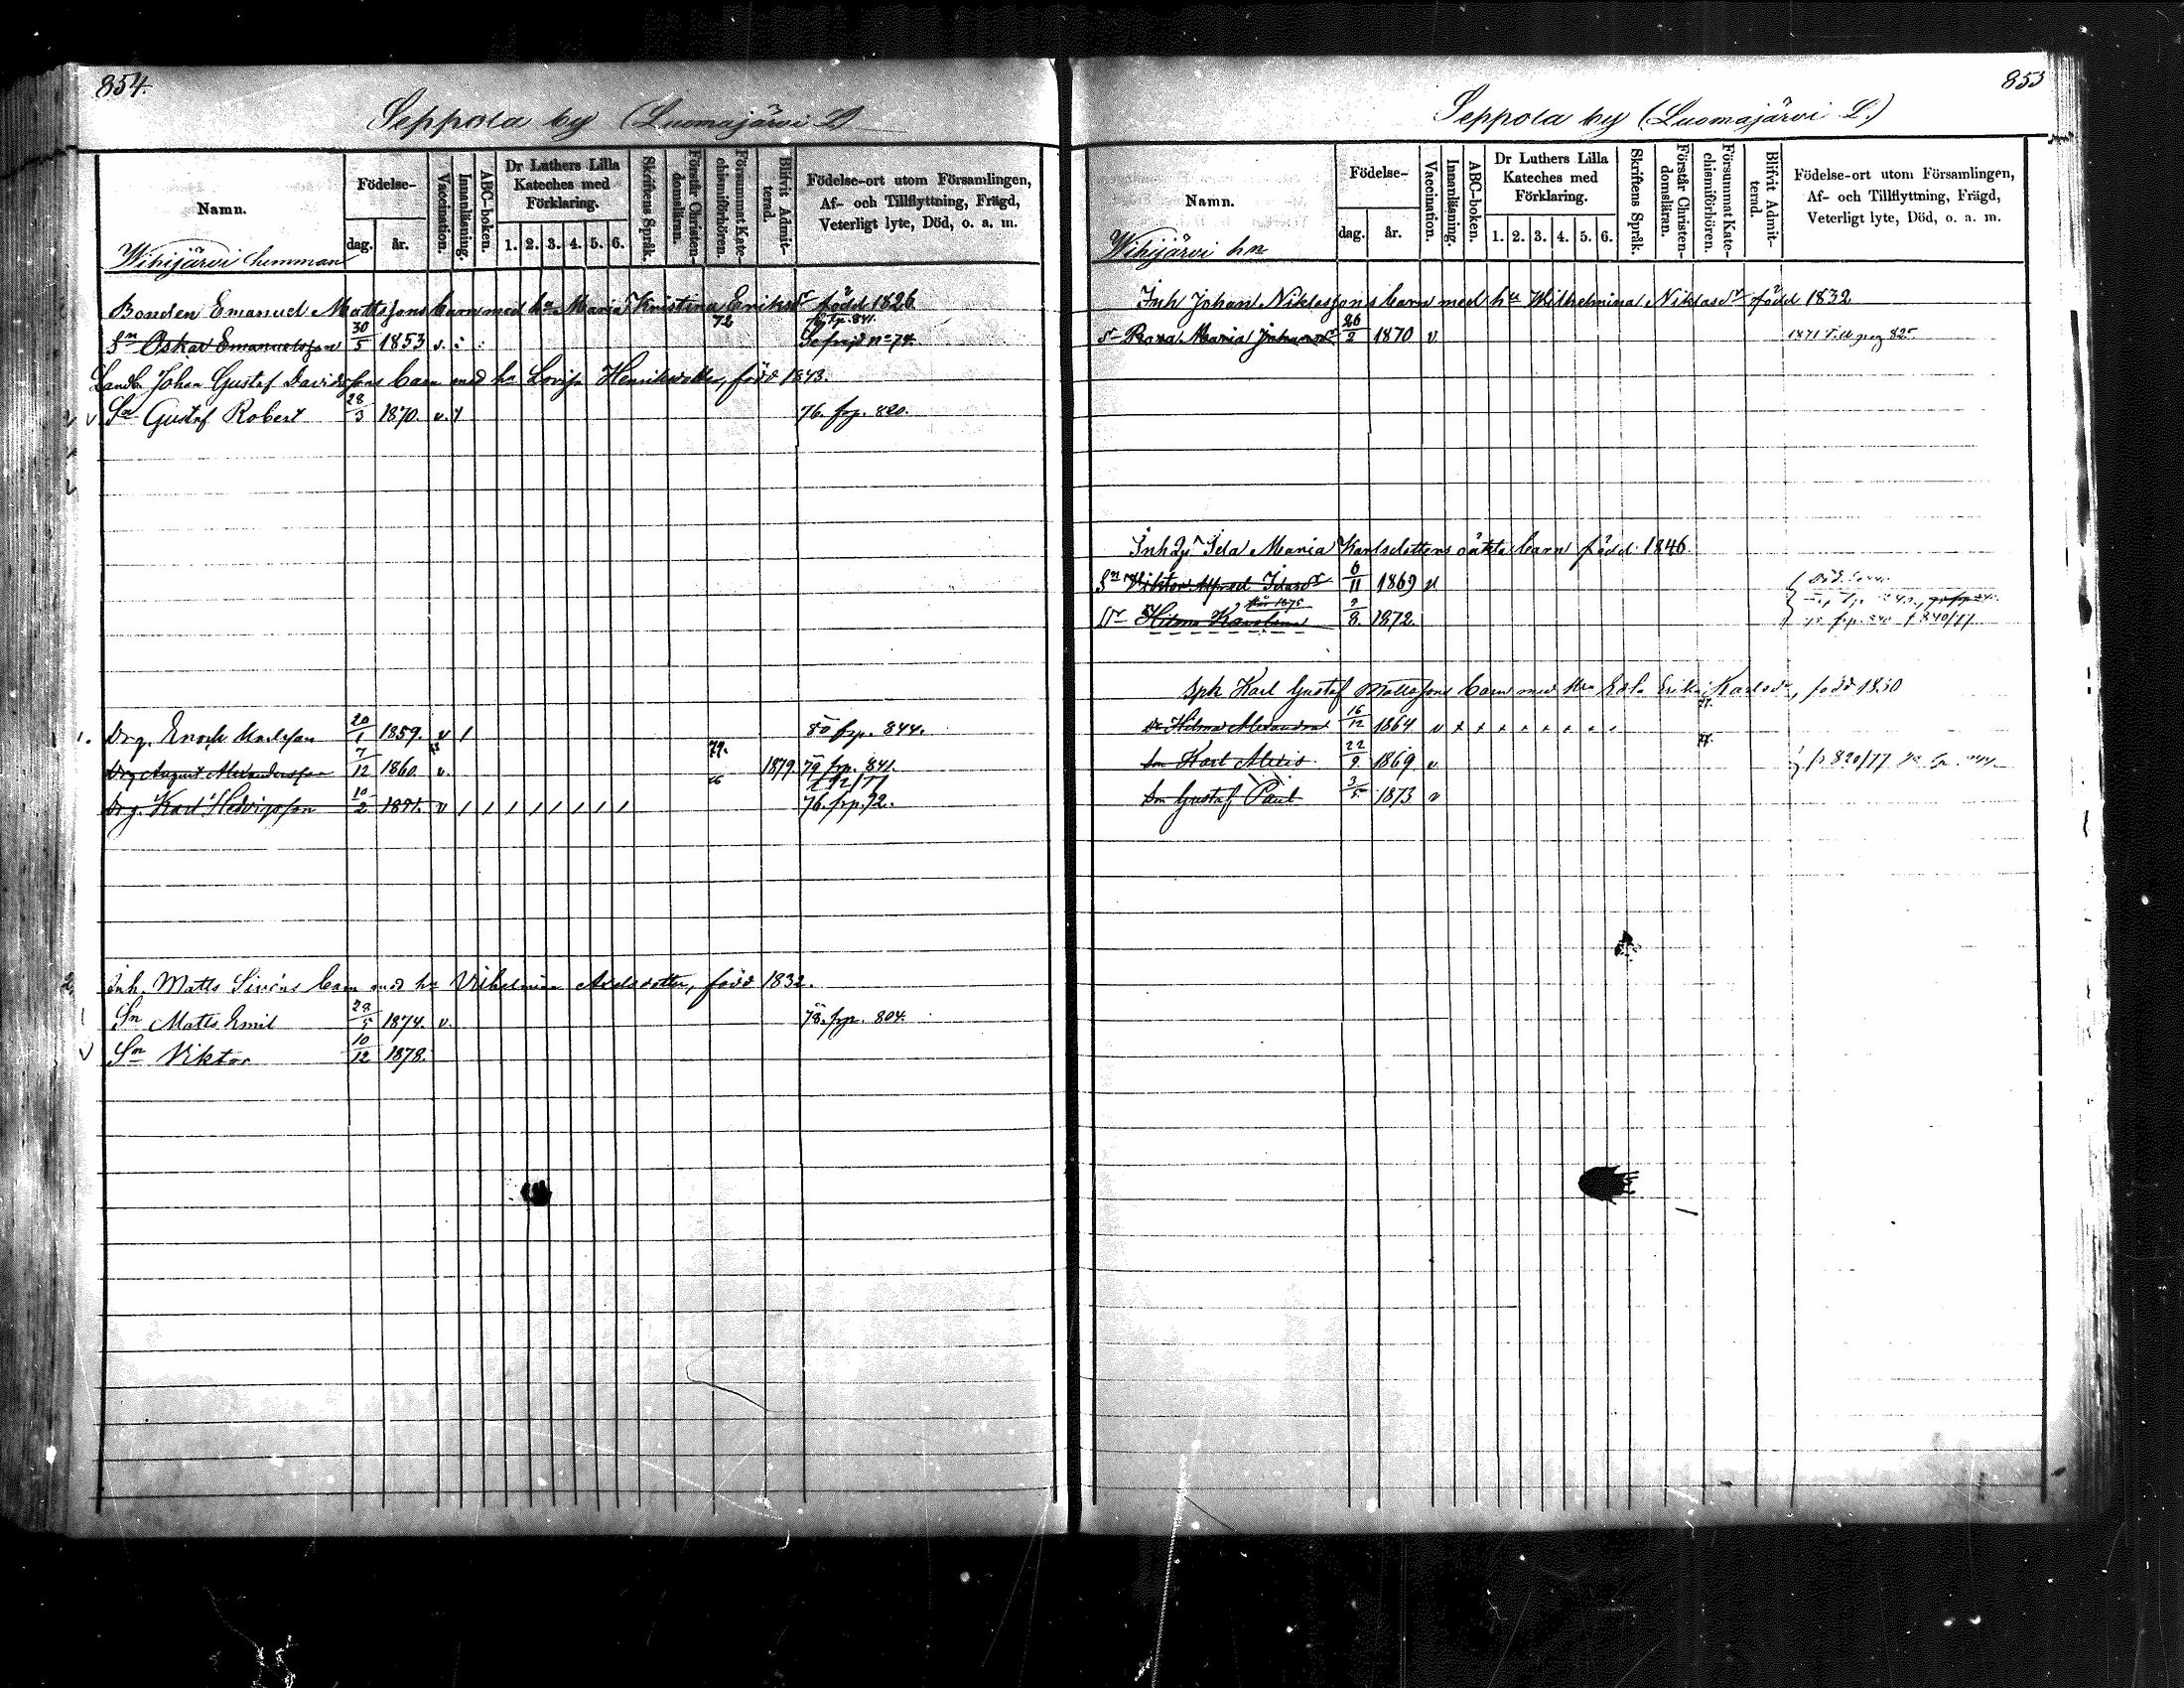 854.
Seppola by (Luomajärvi L)
Namn.
Födelse-
dag. år.
Vaccination.
Innanläsning.
ABC-boken.
Dr Luthers Lilla Kateches med Förklaring.
1. 2. 3. 4. 5. 6.
Skriftens Språk.
Förstår Christendomsläran.
Försummat Katechismiförhören.
Blifvit Admitterad.
Födelse-ort utom Församlingen,
Af- och Tillflyttning, Frägd,
Veterligt lyte, Död, o. a. m.
Wihijärvi hemman
Bonden Emanuel Mattssons barn med hu Maria Kristina Eriksdr född 1826
Sn Oskar Emanuelsson 30/5 1853 v. 72 frp. 841.
Se frejd no 74.
Landb. Johan Gustaf Davidssons barn med hu Lovisa Henriksdotter, född 1843.
v Sn Gustaf Robert 28/3 1870. v. 1 76. frp. 820.
1. Drg. Enoch Karlsson 20/1 1859. v 1 80 frp. 844.
Drg August Alexandersson 7/12 1860. v. 79. 1879. 79 frp. 841.
Drg. Karl Hedvigsson 10/2 1871. v / / / / / / / / 76. frp. 92.
2. Inh. Matts Siréns barn med hu Vilhelmina Axelsdotter, född 1832.
Sn Matts Emil 29/5 1874. v. 78. frp. 804.
v Sn Viktor 10/12 1878.
855
Seppola by (Luomajärvi L.)
Namn.
Födelse-
dag. år.
Vaccination.
Innanläsning.
ABC-boken.
Dr Luthers Lilla Kateches med Förklaring.
1. 2. 3. 4. 5. 6.
Skriftens Språk.
Förstår Christendomsläran.
Försummat Katechismiförhören.
Blifvit Admitterad.
Födelse-ort utom Församlingen,
Af- och Tillflyttning, Frägd,
Veterligt lyte, Död, o. a. m.
Wihijärvi hn
Inh Johan Niklassons barn med hu Wilhelmina Niklasdr född 1832
Dr Rosa Maria Johansdr 26/2 1870 v 1871 till pag 825
Inh Ida Maria Karlsdotters oäkta barn född 1846
Sn Viktor Alfred Idason 6/11 1869 v
Dr Hilma Karolina 9/8. 1872. 840/77
Sph Karl Gustaf Mattssons barn med hu Eva Erika Karlsdr, född 1830
Dr Hilma Alexandra 16/12 1864 v x x x x x x x x
Sn Karl Alexis 22/9 1869 v fr 820/77
Sn Gustaf Paul 3/5 1873 v